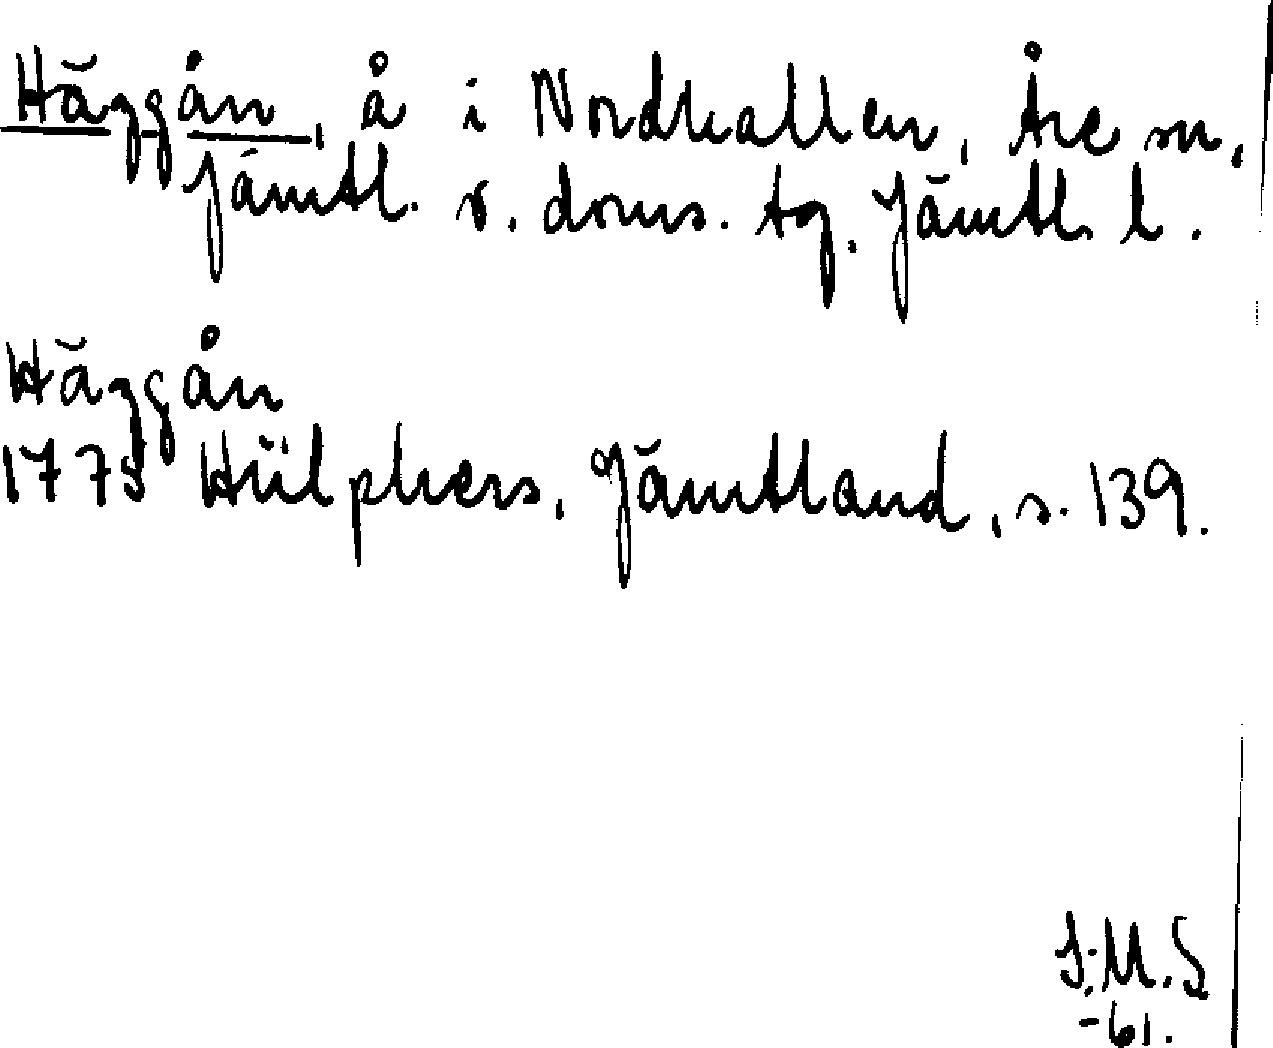 Häggån, å i Nordhallen, Åre sn,
Jämtl. v. doms. tg. Jämtl. l.
Häggån
1775 Hülphers, Jämtland, s. 139.
I.M.S
-61.